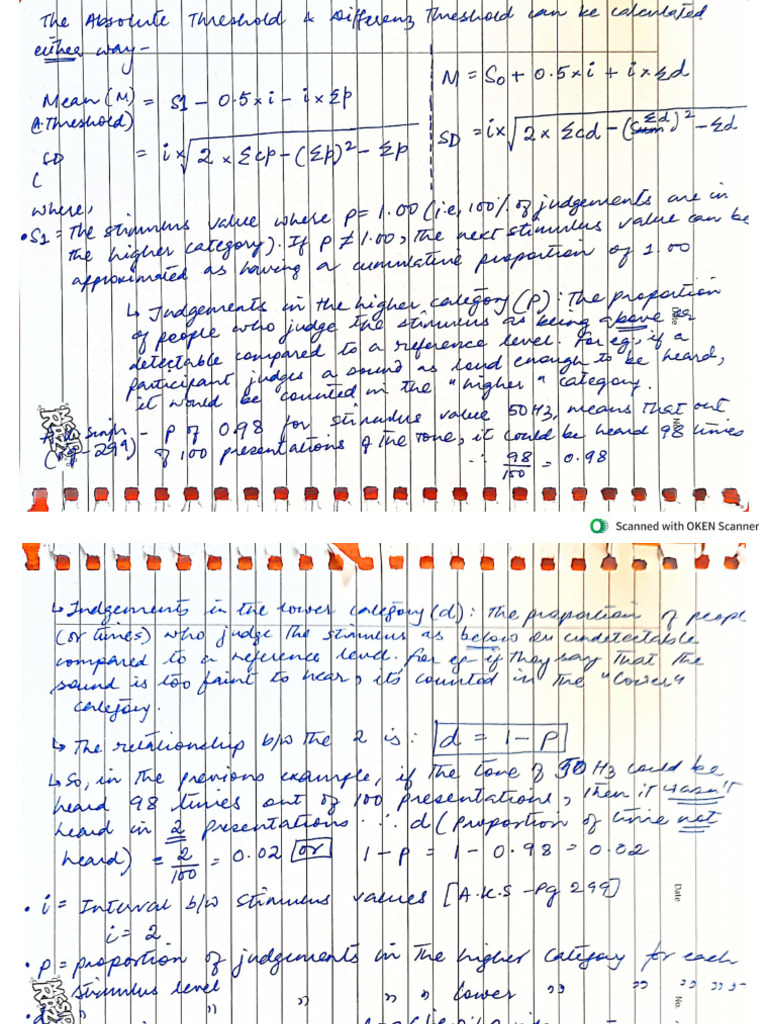 The Absolute Threshold & Differenz Threshold can be calculated
either way-
Mean (M) = S1 - 0.5 x i - i x Σp
(A.Threshold)
SD = i x √2 x Σcp - (Σp)² - Σp
(
M = S0 + 0.5 x i + i x Σd
SD = i x √2 x Σcd - (Σd)² - Σd
where,
• S1 = The stimulus value where p = 1.00 (i.e, 100% of judgements are in
the higher category). If P ≠ 1.00, the next stimulus value can be
approximated as having a cumulative proportion of 1.00
↳ Judgements in the higher category (P): The proportion
of people who judge the stimulus as being above or
detectable compared to a reference level. For eg, if a
participant judges a sound as loud enough to be heard,
it would be counted in the "higher" category.
singh - P of 0.98 for stimulus value 50Hz, means that out
299) of 100 presentations of the tone, it could be heard 98 times
∴ 98/100 = 0.98
Date
No.
Scanned with OKEN Scanner
↳ Judgements in the lower category (d): The proportion of people
(or times) who judge the stimulus as below or undetectable
compared to a reference level. For eg- if they say that the
sound is too faint to hear, it's counted in the "lower"
category.
↳ The relationship b/w the 2 is: d = 1 - P
↳ So, in the previous example, if the tone of 50 Hz could be
heard 98 times out of 100 presentations, then it wasn't
heard in 2 presentations ∴ d (proportion of time not
heard) = 2/100 = 0.02 or 1 - P = 1 - 0.98 = 0.02
• i = Interval b/w stimulus values [A.K.S - Pg 299]
i = 2
Date
• p = proportion of judgements in the higher category for each
stimulus level
" " " lower " " " "
No.